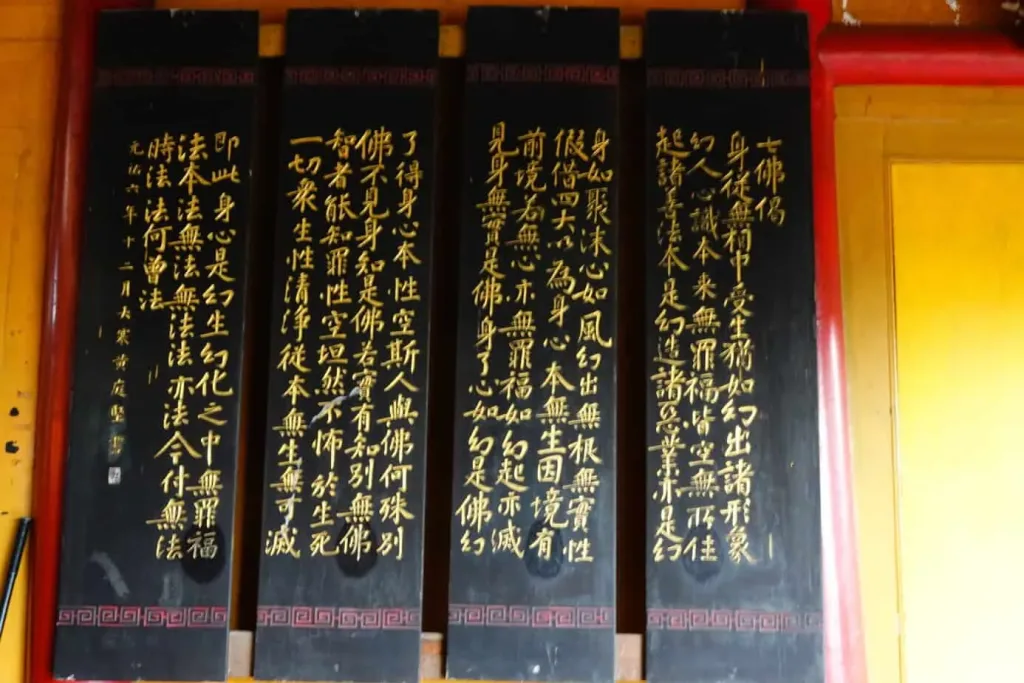 七佛偈
身從無相中受生猶如幻出諸形象
幻人心識本来無罪福皆空無所住
起諸善法本是幻造諸惡業亦是幻
身如聚沫心如風幻出無根無實性
假借四大以為身心本無生因境有
前境若無心亦無罪福如幻起亦滅
見身無實是佛身了心如幻是佛幻
了得身心本性空斯人與佛何殊別
佛不見身知是佛若實有知別無佛
智者能知罪性空坦然不怖於生死
一切衆生性清淨從本無生無可滅
即此身心是幻生幻化之中無罪福
法本法無法無法法亦法今付無法
時法法何曾法
元祐六年十二月大寒黄庭堅書